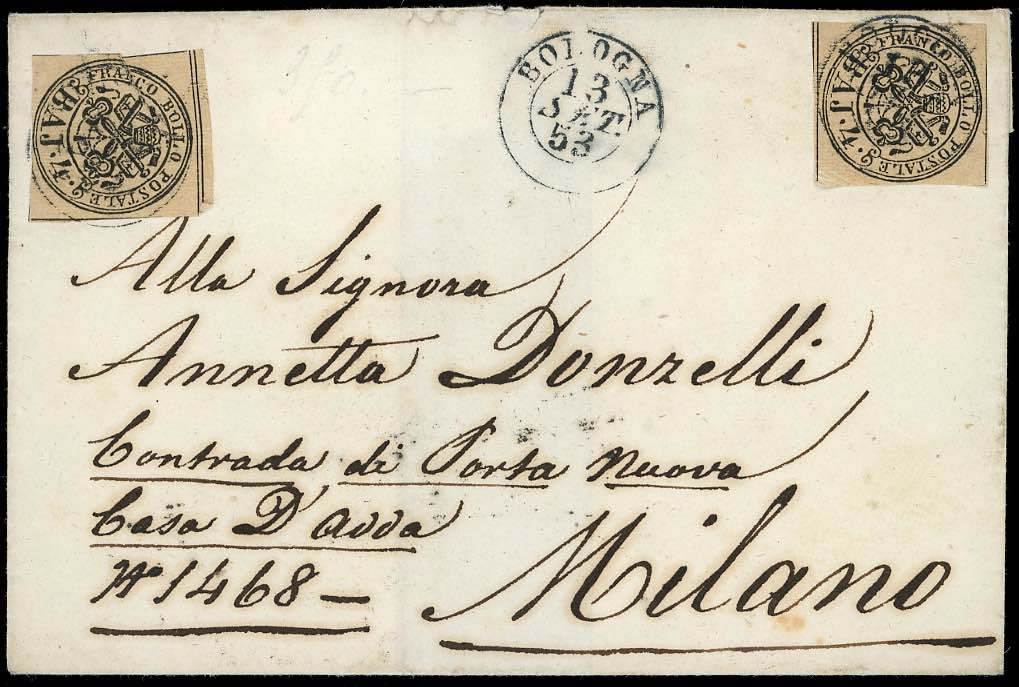 FRANCO BOLLO POSTALE
BAJ. 4.
BOLOGNA
13
SET.
53
FRANCO BOLLO POSTALE
BAJ. 4.
Alla Signora
Annetta Donzelli
Contrada di Porta Nuova
Casa D'Adda
N° 1468 —
Milano